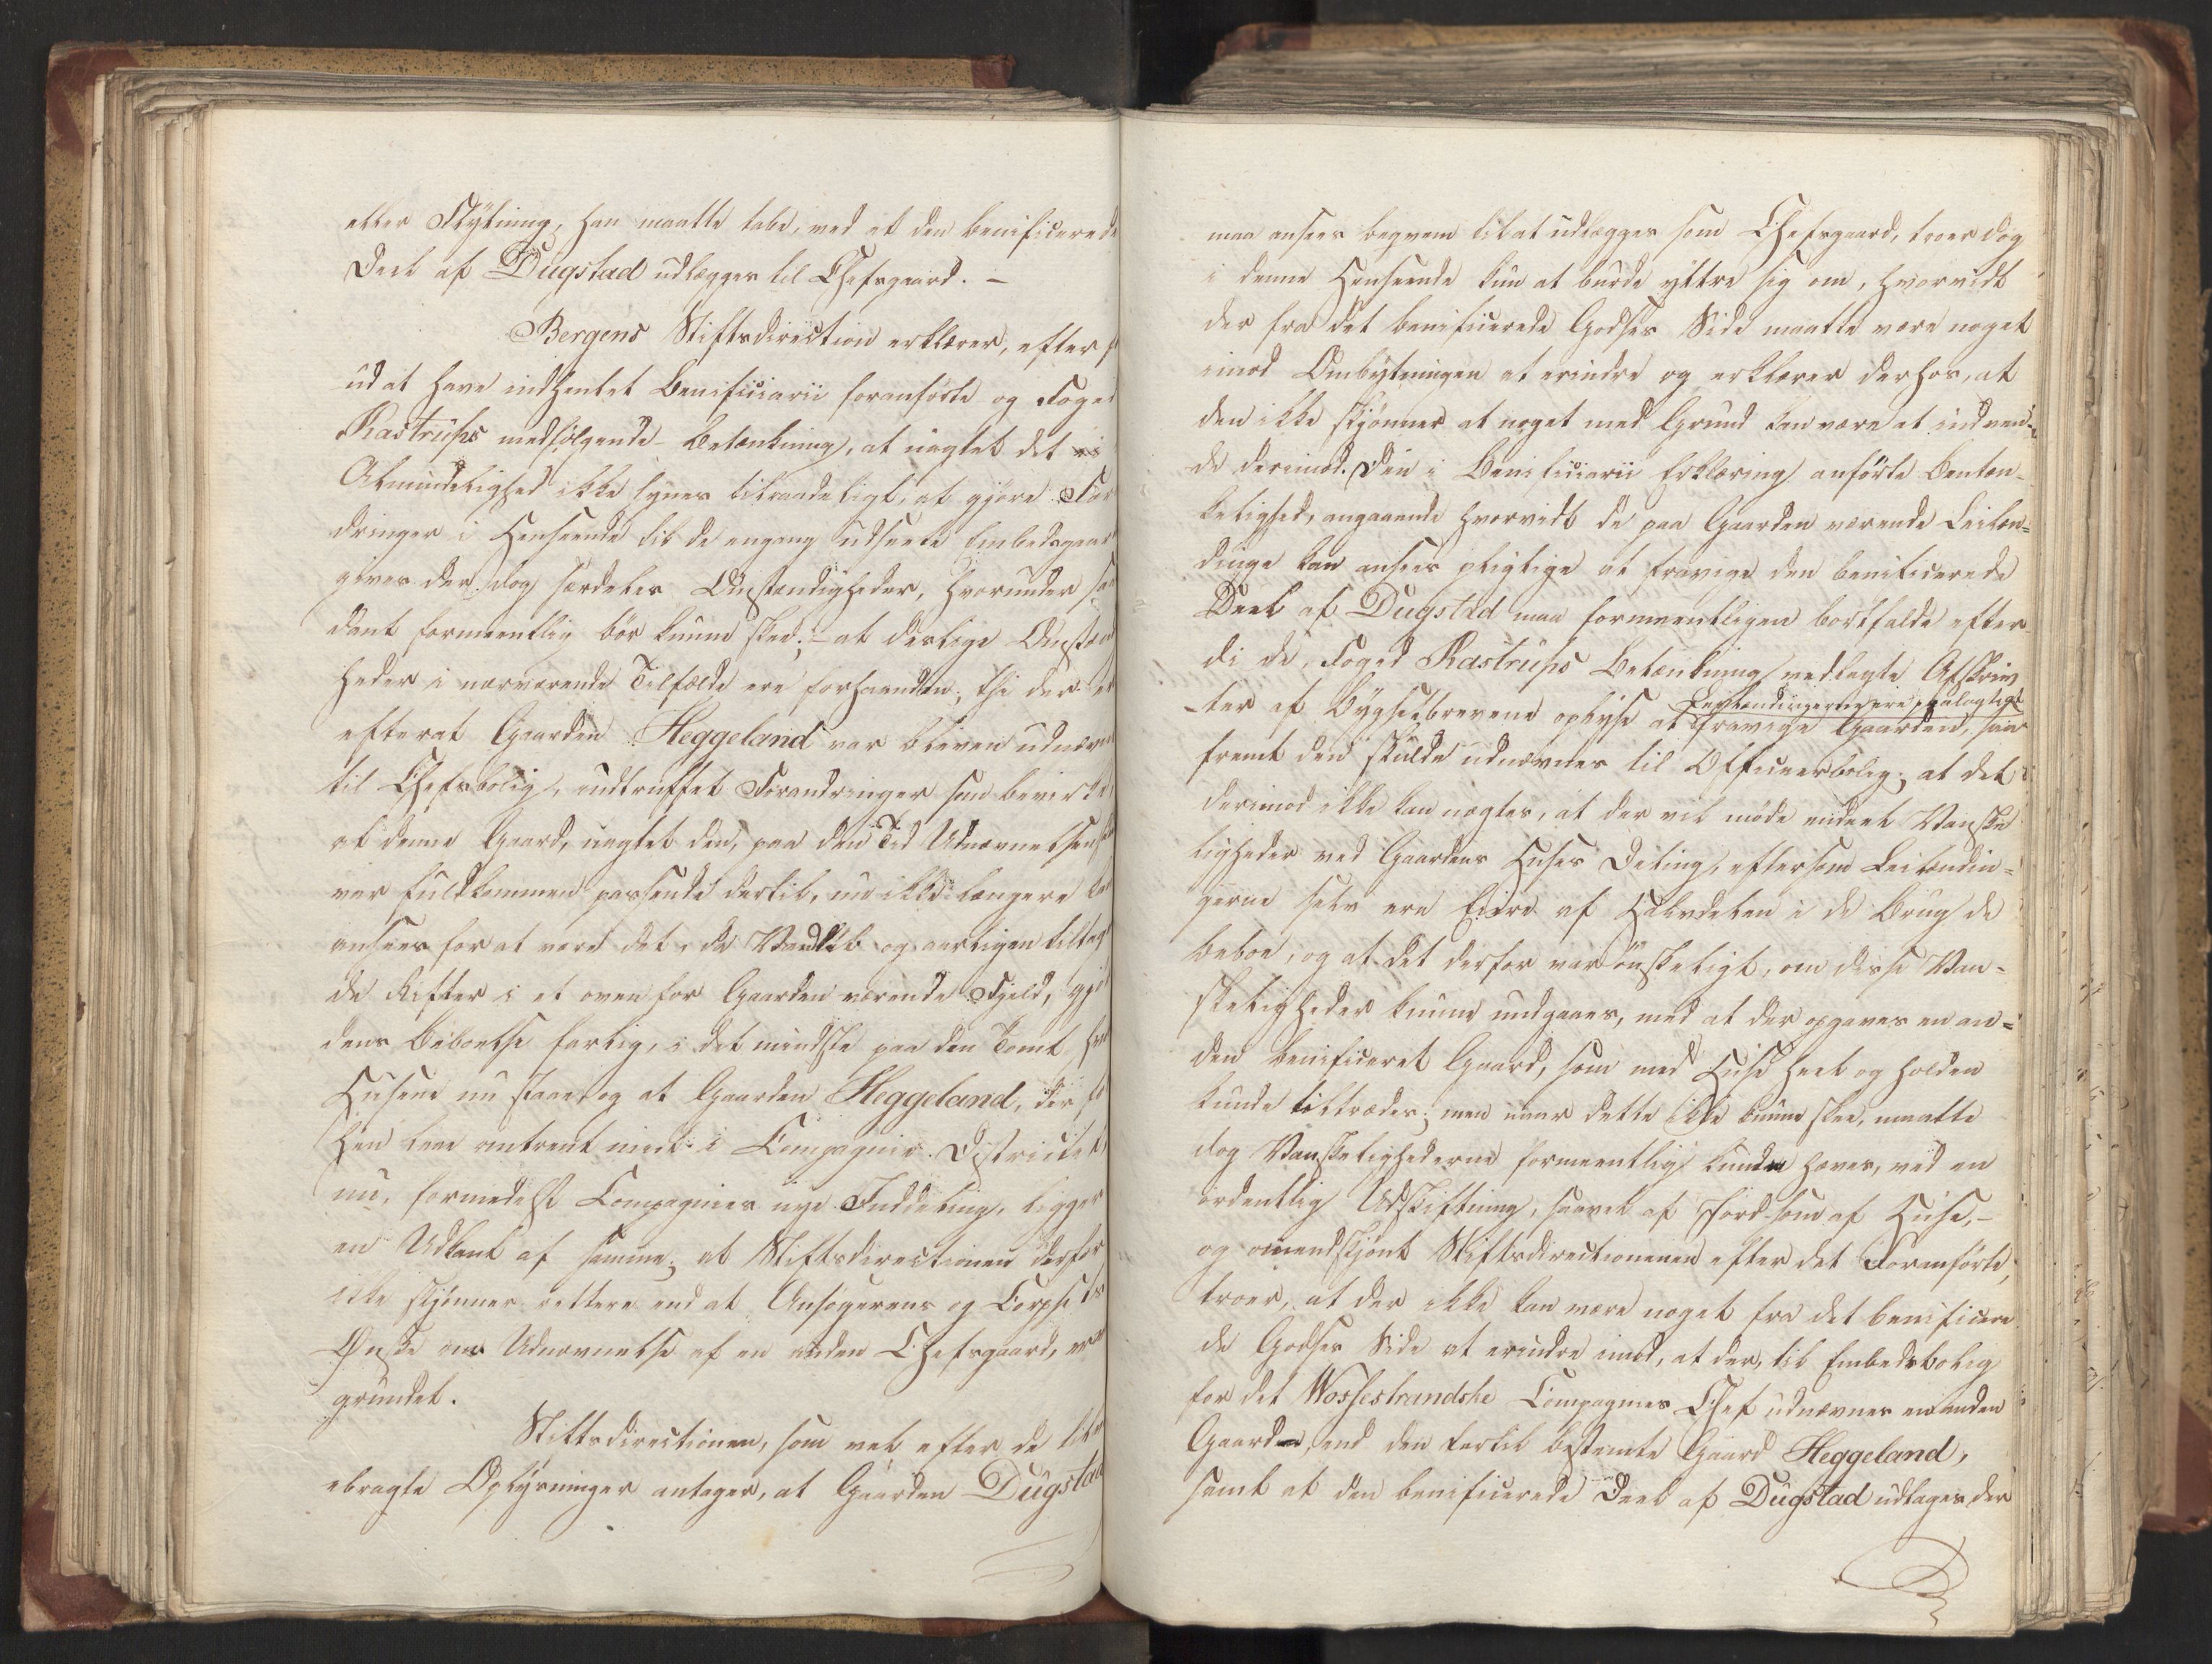 eller Flytning, han maatte tabe, ved at den benificerede
Deel af Dugstad udlægges til Chefsgaard. –
Bergens Stiftsdirection erklærer, efter
ud at have indhentet Beneficiarii foranførte og Foged
Rastrups medfølgende Betænkning, at uagtet det
Almindelighed ikke synes tilraadeligt, at gjøre
dringer i Henseende til de engang udseete Embedsgaar
gives der dog særdeles Omstændigheder, hvorunder
dant formeentlig bør kunne skee; – at deslige Omstæn
heder i nærværende Tilfælde ere forhaanden, thi der
efterat Gaarden Heggeland var bleven udnævn
til Chefsbolig, indtruffet Forandringer som bevirke
at denne Gaard, uagtet den, paa den Tid Udnævnelsen
var fuldkommen passende dertil, nu ikke længere
ansees for at være det, da Vandløb og aarligen tiltag
de Rifter i et oven for Gaarden værende Fjeld,
dens Beboelse farlig, i det mindste paa den Tomt
Husene nu staae og at Gaarden Heggeland, der
hen laae omtrent midt i Compagnie-Districtet
nu, formedelst Compagniets nye Inddeling, ligger
en Udkant af samme; at Stiftsdirectionen derfor
ikke skjønner rettere end at Ansøgerens og Corpsets
Ønske om Udnævnelse af en anden Chefsgaard,
grundet.
Stiftsdirectionen, som vel efter de tilve
ebragte Oplysninger antager, at Gaarden Dugstad
maa ansees beqvem til at udlægges som Chefsgaard, troer dog
i denne Henseende kun at burde yttre sig om, hvorvidt
der fra det benificerede Godses Side maatte være noget
imod Ombytningen at erindre og erklærer derhos, at
den ikke skjønner at noget med Grund kan være at indven-
de derimod. Den i Beneficiarii Erklæring anførte Tvæn-
kelighed, angaaende hvorvidt de paa Gaarden værende Leilæn-
dinge kan ansees pligtige at fravige den benificerede
Deel af Dugstad maa formeentligen bortfalde efter-
di de, Foged Rastrups Betænkning vedlagte Afskriv
ter af Bygselbrevene oplyse at Leilændingerne ere paalagt at fravige Gaarden, saa
fremt den skulde udnævnes til Officeerbolig; at det
derimod ikke kan nægtes, at der vil møde endeel Vanske
ligheder ved Gaardens Huses Deling, eftersom Leilændin-
gerne selv ere Eiere af Halvdelen i de Brug de
beboe, og at det derfor var ønskeligt, om disse Van-
skeligheder kunne undgaaes, med at der opgaves en an-
den benificeret Gaard, som med Huse heel og holden
kunde tiltrædes; men naar dette ikke kunne skee, maatte
dog Vanskelighederne formeentlig kunde hæves, ved en
ordentlig Udskiftning, saavel af Jord som af Huse, –
og omendskjønt Stiftsdirectionen efter det Foranførte,
troer, at der ikke kan være noget fra det benificere
de Godses Side at erindre imod, at der, til Embedsbolig
for det Wossestrandske Compagnies Chef udnævnes en anden
Gaard, end den dertil bestemte Gaard Heggeland,
samt at den benificerede Deel af Dugstad udtages der